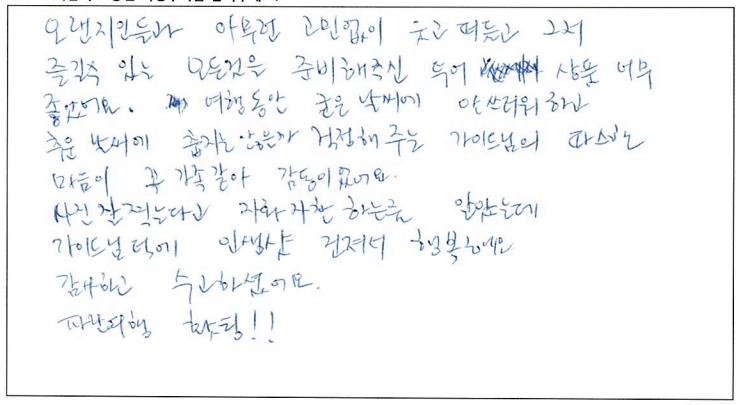 오랜지인들과 아무런 고민없이 웃고 떠들고 그저
즐길수 있는 모든것을 준비해주신 투어 상품 너무
좋았어요. 여행동안 궂은 날씨에 안쓰러워하고
추운 날씨에 춥지는 않은가 걱정해 주는 가이드님의 따스한
마음이 꼭 가족같아 감동이었어요.
사진 잘찍는다고 자화자찬 하는줄 알았는데
가이드님 덕에 인생샷 건져서 행복해요
감사하고 수고하셨어요.
파란여행 화팅!!